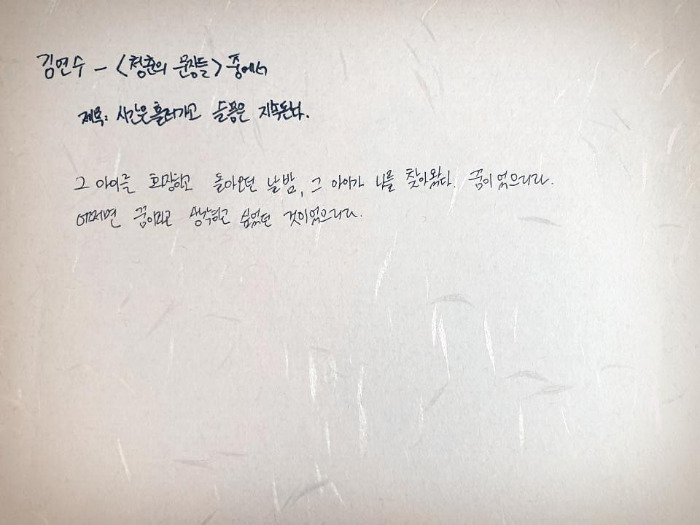 김연수 - <청춘의 문장들> 중에서
제목: 시간은 흘러가고 슬픔은 지속된다.
그 아이를 화장하고 돌아오던 날 밤, 그 아이가 나를 찾아왔다. 꿈이었으리라.
어쩌면 꿈이라고 생각하고 싶었던 것이었으리라.